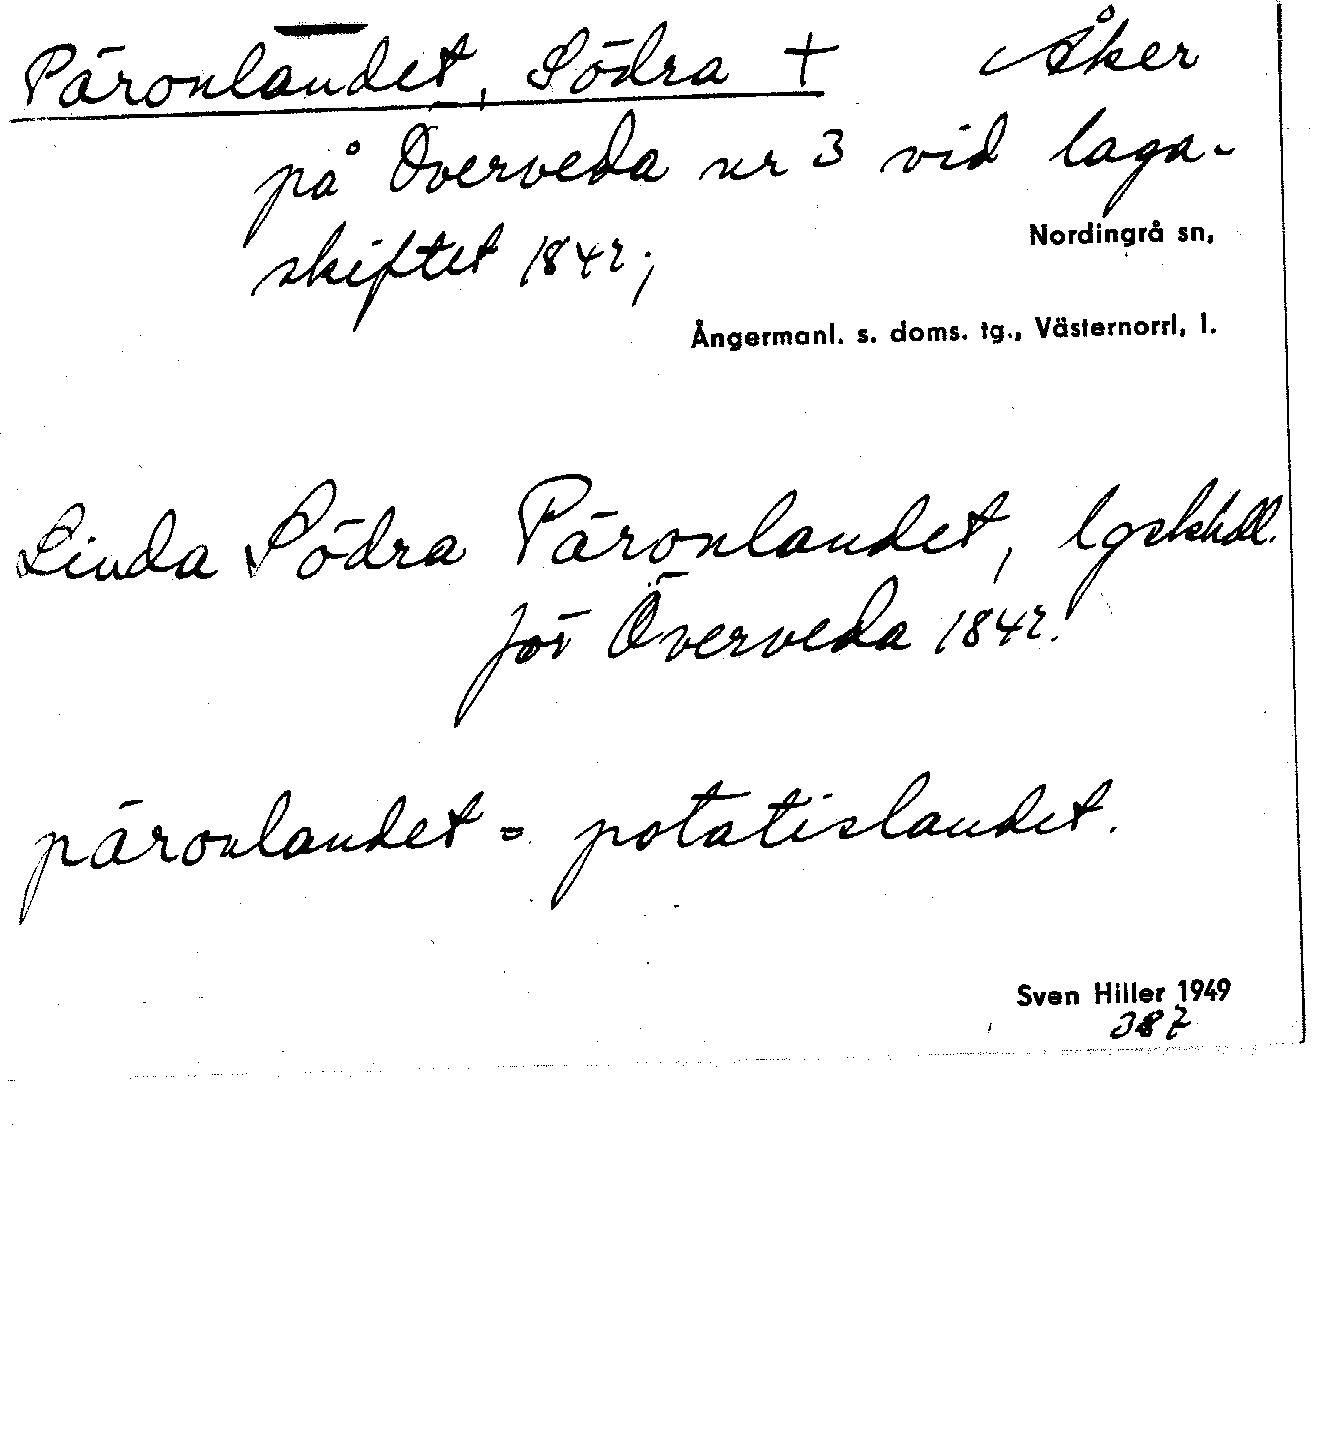 Päronlandet, Södra +
Åker
på Överveda nr 3 vid laga-
skiftet 1842;
Nordingrå sn,
Ångermanl. s. doms. tg., Västernorrl, l.
Linda Södra Päronlandet, lgskhdl.
för Överveda 1842.
päronlandet = potatislandet.
Sven Hiller 1949
387